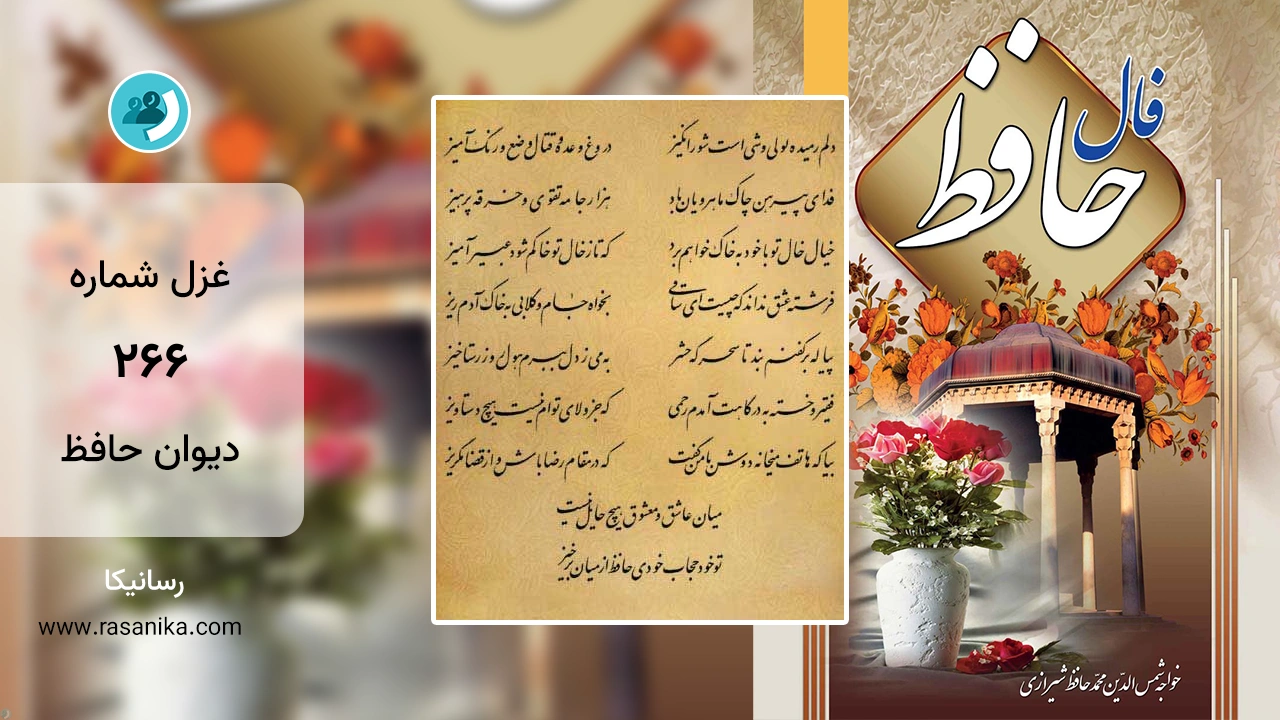 فال
حافظ
دلم رمیده لولی‌وشی است شورانگیز
دروغ وعده و قتال وضع و رنگ آمیز
فدای پیرهن چاک ماهرویان باد
هزار جامه تقوی و خرقه پرهیز
خیال خال تو با خود به خاک خواهم برد
که تا ز خال تو خاکم شود عبیر آمیز
فرشته عشق نداند که چیست ای ساقی
بخواه جام و گلابی به خاک آدم ریز
پیاله بر کفنم بند تا سحرگه حشر
به می ز دل ببرم هول روز رستاخیز
فقیر و خسته به درگاهت آمدم رحمی
که جز ولای توام نیست هیچ دستاویز
بیا که هاتف میخانه دوش با من گفت
که در مقام رضا باش و از قضا مگریز
میان عاشق و معشوق هیچ حایل نیست
تو خود حجاب خودی حافظ از میان برخیز
غزل شماره
۲۶۶
دیوان حافظ
رسانیکا
www.rasanika.com
خواجه شمس الدّین محمّد حافظ شیرازی